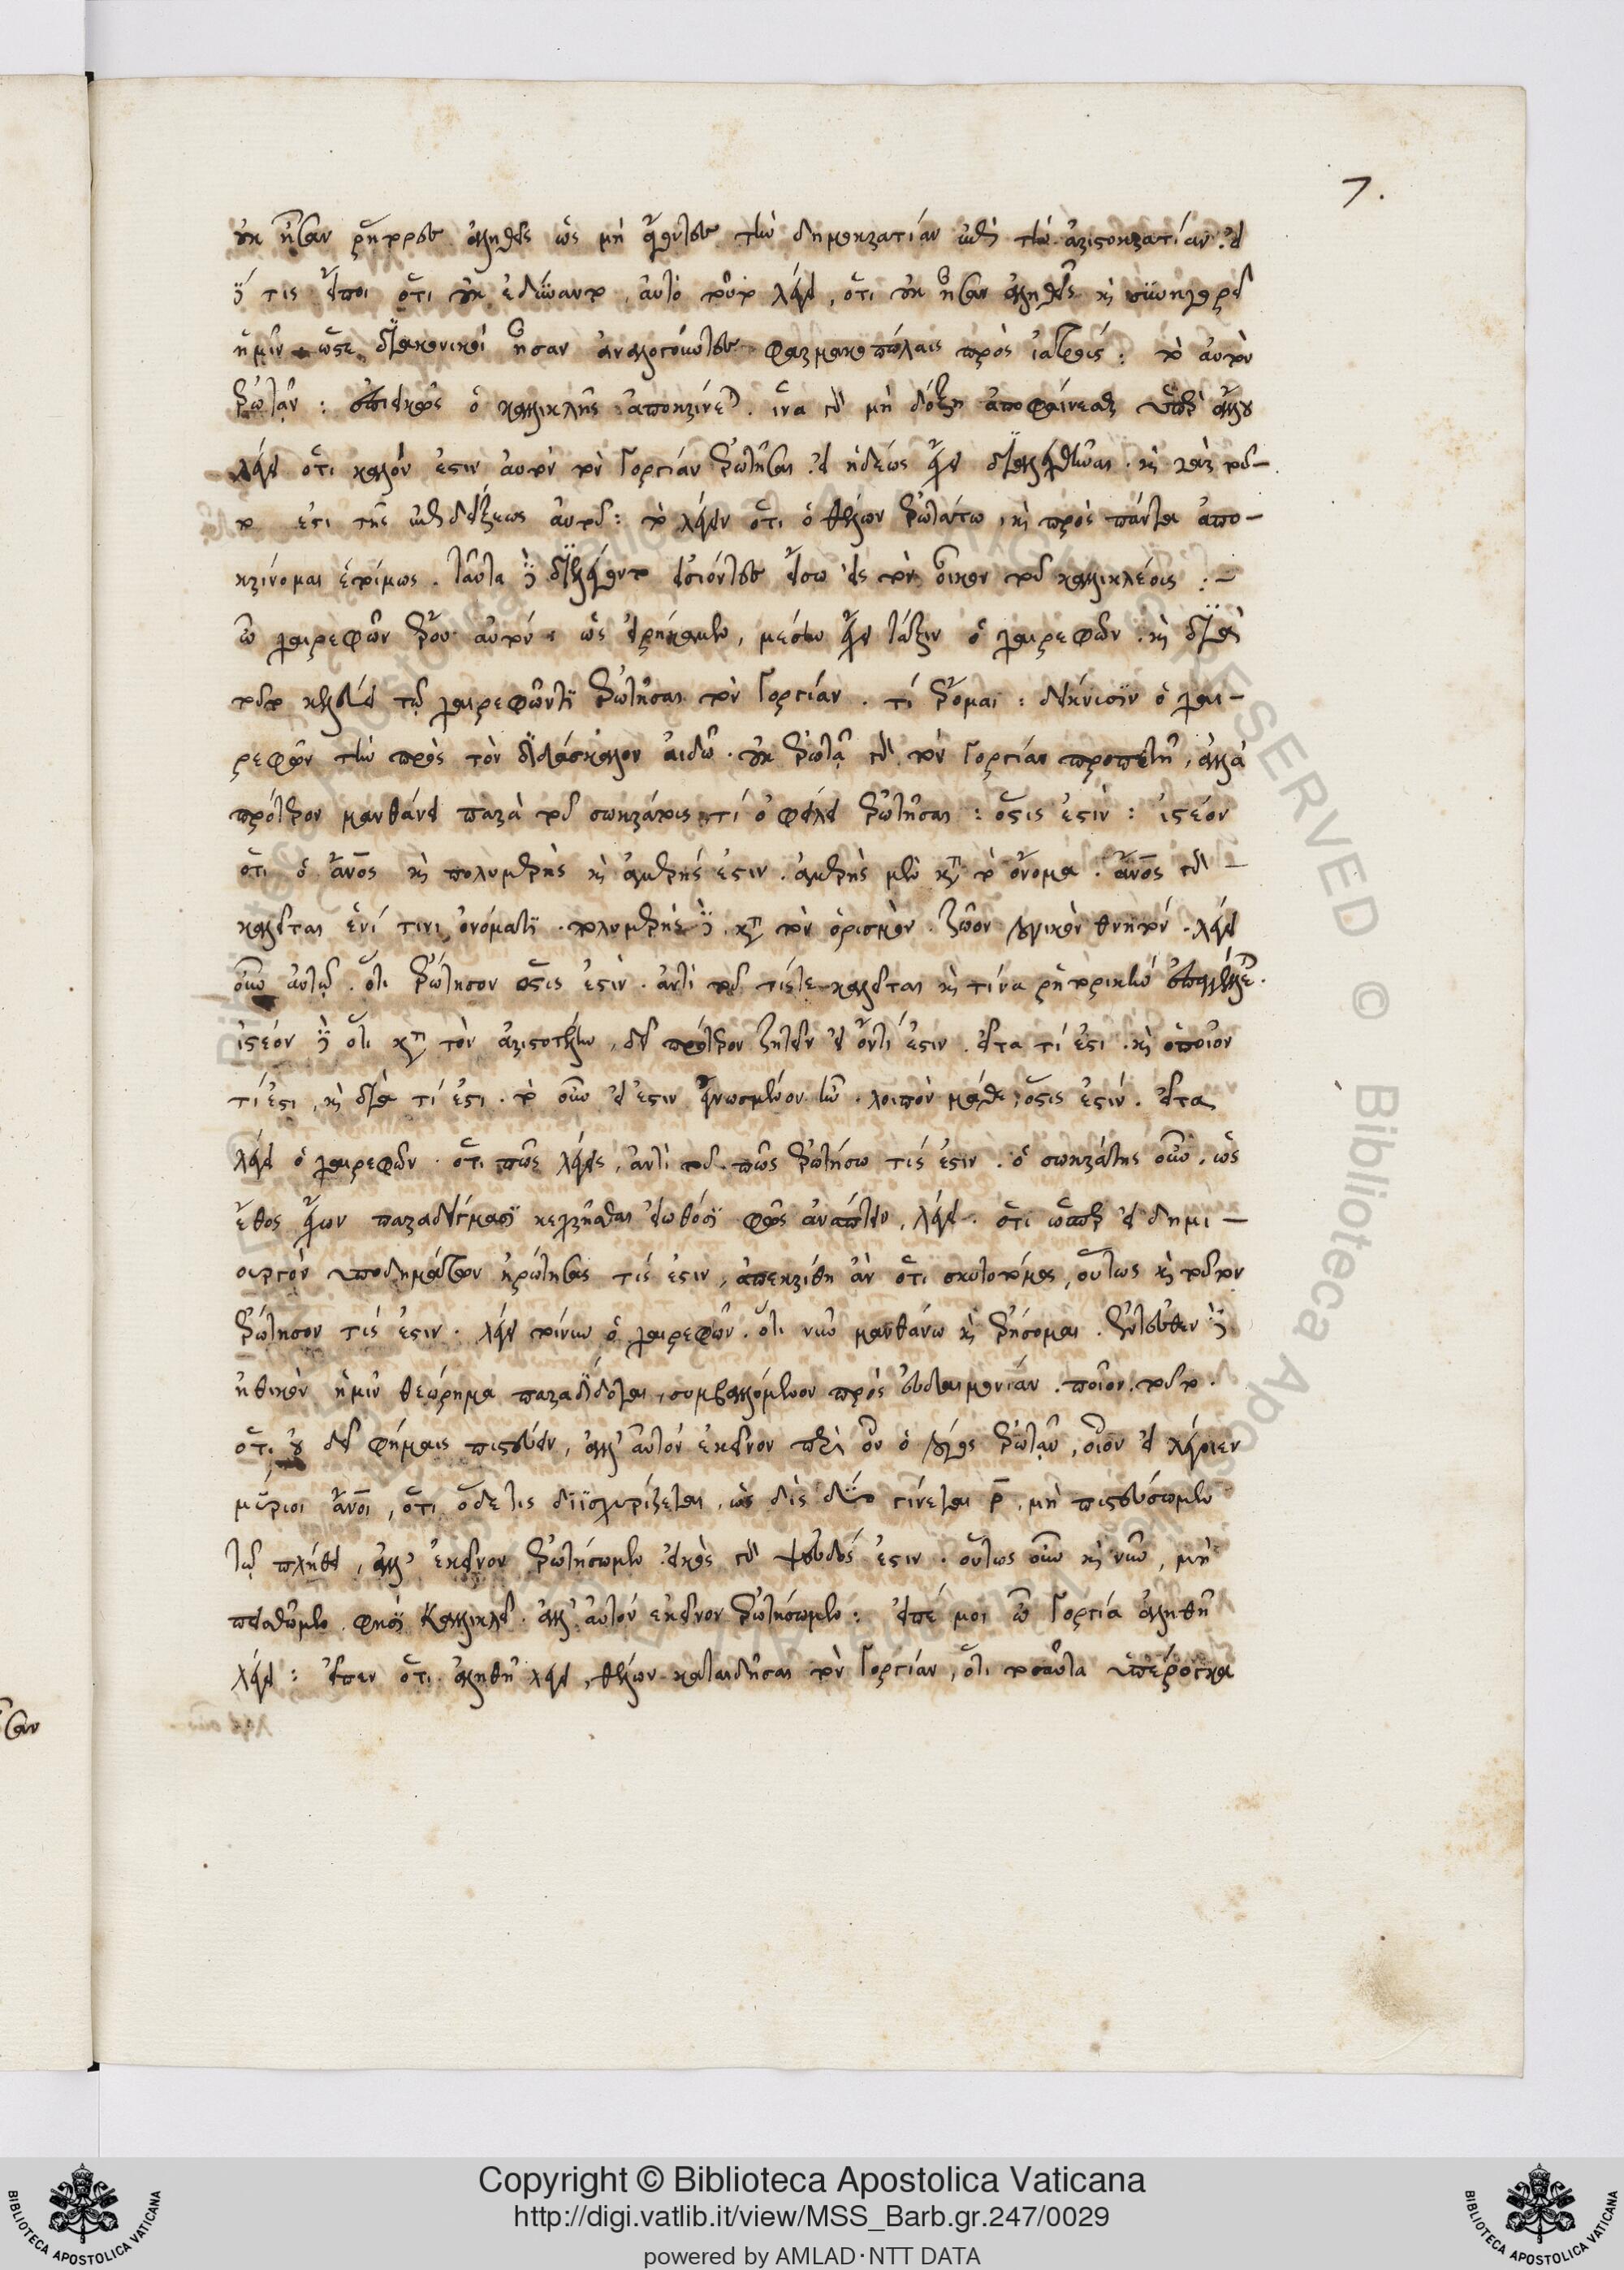 7.
οὐκ ἦσαν ῥήτορες ἀληθεῖς ὡς μὴ ἔχοντες τὴν δημοκρατίαν ἐπὶ τὴν ἀριστοκρατίαν. εἰ
δέ τις εἴποι ὅτι οὐκ ἐδύναντο, αὐτὸ τοῦτο λέγει, ὅτι οὐκ ἦσαν ἀληθεῖς καὶ συνηγορεῖ
ἡμῖν ὥστε διακονικοὶ ἦσαν ἀναλογοῦντες φαρμακοπώλαις πρὸς ἰατρούς: τὸ αὐτὸν
ἐρωτᾶν: ἐπιεικῶς ὁ καλλικλῆς ἀποκρίνεται. ἵνα γὰρ μὴ δόξῃ ἀποφαίνεσθαι ὑπὲρ ἄλλου
λέγει ὅτι καλόν ἐστιν αὐτὸν τὸν Γοργίαν ἐρωτῆσαι. εἰ ἡδέως ἔχει διαλεχθῆναι. καὶ γὰρ τοῦ-
το ἐστι τῆς ἐπιδείξεως αὐτοῦ: τὸ λέγειν ὅτι ὁ θέλων ἐρωτάτω, καὶ πρὸς πάντα ἀπο-
κρίνομαι ἑτοίμως. ταῦτα δὲ διελέγοντο εἰσιόντες ἔσω εἰς τὸν οἶκον τοῦ καλλικλέους :-
ὦ χαιρεφῶν ἐροῦ αὐτόν: ὡς εἰρήκαμεν, μέσην ἔχει τάξιν ὁ χαιρεφῶν. καὶ διὰ
τοῦτο κελεύει τῷ χαιρεφῶντι ἐρωτῆσαι τὸν Γοργίαν. τί ἔρωμαι: δείκνυσιν ὁ χαι-
ρεφῶν τὴν πρὸς τὸν διδάσκαλον αἰδῶ. οὐκ ἐρωτᾷ γὰρ τὸν Γοργίαν προπετῆ, ἀλλὰ
πρότερον μανθάνει παρὰ τοῦ σωκράτους τί ὀφείλει ἐρωτῆσαι: ὅστις ἐστίν: ἰστέον
ὅτι ὁ ἄνος καὶ πολυμερὴς καὶ ἀμερής ἐστιν. ἀμερὴς μὲν κατὰ τὸ ὄνομα. ἄνος γὰρ -
καλεῖται ἑνί τινι ὀνόματι. πολυμερὴς δὲ κατὰ τὸν ὁρισμόν. ζῶον λογικὸν θνητόν. λέγει
οὖν αὐτῷ. ὅτι ἐρώτησον ὅστις ἐστίν. ἀντὶ τοῦ τίς τε καλεῖται καὶ τίνα ῥητορικὴν ἐπαγγέλλεται.
ἰστέον δὲ ὅτι κατὰ τὸν ἀριστοτέλην, δεῖ πρότερον ζητεῖν εἰ ὄντι ἐστιν. εἶτα τί ἐστι. καὶ ὁποῖον
τί ἐστι, καὶ διὰ τί ἐστι. τὸ οὖν εἰ ἔστιν ἐγνωσμένον ἦν. λοιπὸν μάθε, ὅστις ἐστίν. εἶτα
λέγει ὁ χαιρεφῶν. ὅτι πῶς λέγεις, ἀντὶ τοῦ πῶς ἐρωτήσω τίς ἐστιν. ὁ σωκράτης οὖν, ὡς
ἔθος ἔχων παραδείγμασι κεχρῆσθαι εἰωθόσι φῶς ἀνάπτειν, λέγει. ὅτι ὥσπερ εἰ δημι-
ουργὸν ὑποδημάτων ἠρώτησας τίς ἐστιν, ἀπεκρίθη ἂν ὅτι σκυτοτόμος, οὕτως καὶ τοῦτον
ἐρώτησον τίς ἐστιν. λέγει τοίνυν ὁ χαιρεφῶν. ὅτι νῦν μανθάνω καὶ ἐρήσομαι. ἐντεῦθεν δὲ
ἠθικὸν ἡμῖν θεώρημα παραδίδοται, συμβαλλόμενον πρὸς εὐδαιμονίαν. ποῖον. τοῦτο.
ὅτι οὐ δεῖ φήμαις πιστεύειν, ἀλλ' αὐτὸν ἐκεῖνον περὶ οὗ ὁ λόγος ἐρωτᾶν, οἷον εἰ λέγοιεν
μύριοι ἄνοι, ὅτι ὅδε τις διισχυρίζεται, ὡς δὶς δύο γίνεται ρ, μὴ πιστεύσωμεν
τῷ πλήθει, ἀλλ' ἐκεῖνον ἐρωτήσωμεν. εἰκὸς γὰρ ψεῦδός ἐστιν. οὕτως οὖν καὶ νῦν, μὴ
πεισθῶμεν φησὶ Καλλικλεῖ. ἀλλ' αὐτὸν ἐκεῖνον ἐρωτήσωμεν: εἰπέ μοι ὦ Γοργία ἀληθῆ
λέγει: εἶπεν ὅτι ἀληθῆ λέγει, θέλων καταιδῆσαι τὸν Γοργίαν, ὅτι τοσαῦτα ὑπέρογκα
Copyright © Biblioteca Apostolica Vaticana
http://digi.vatlib.it/view/MSS_Barb.gr.247/0029
powered by AMLAD·NTT DATA
BIBLIOTECA APOSTOLICA VATICANA
BIBLIOTECA APOSTOLICA VATICANA